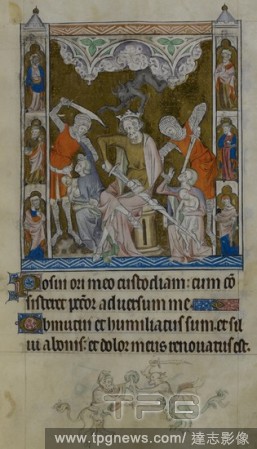 Posui ori meo custodiam: cum cō
sisteret pctōr aduersum me
Obmutui et humiliatus sum et sil
ui a bonis: et dolor meus renouatus est.
TPG
www.tpgnews.com / 達志影像